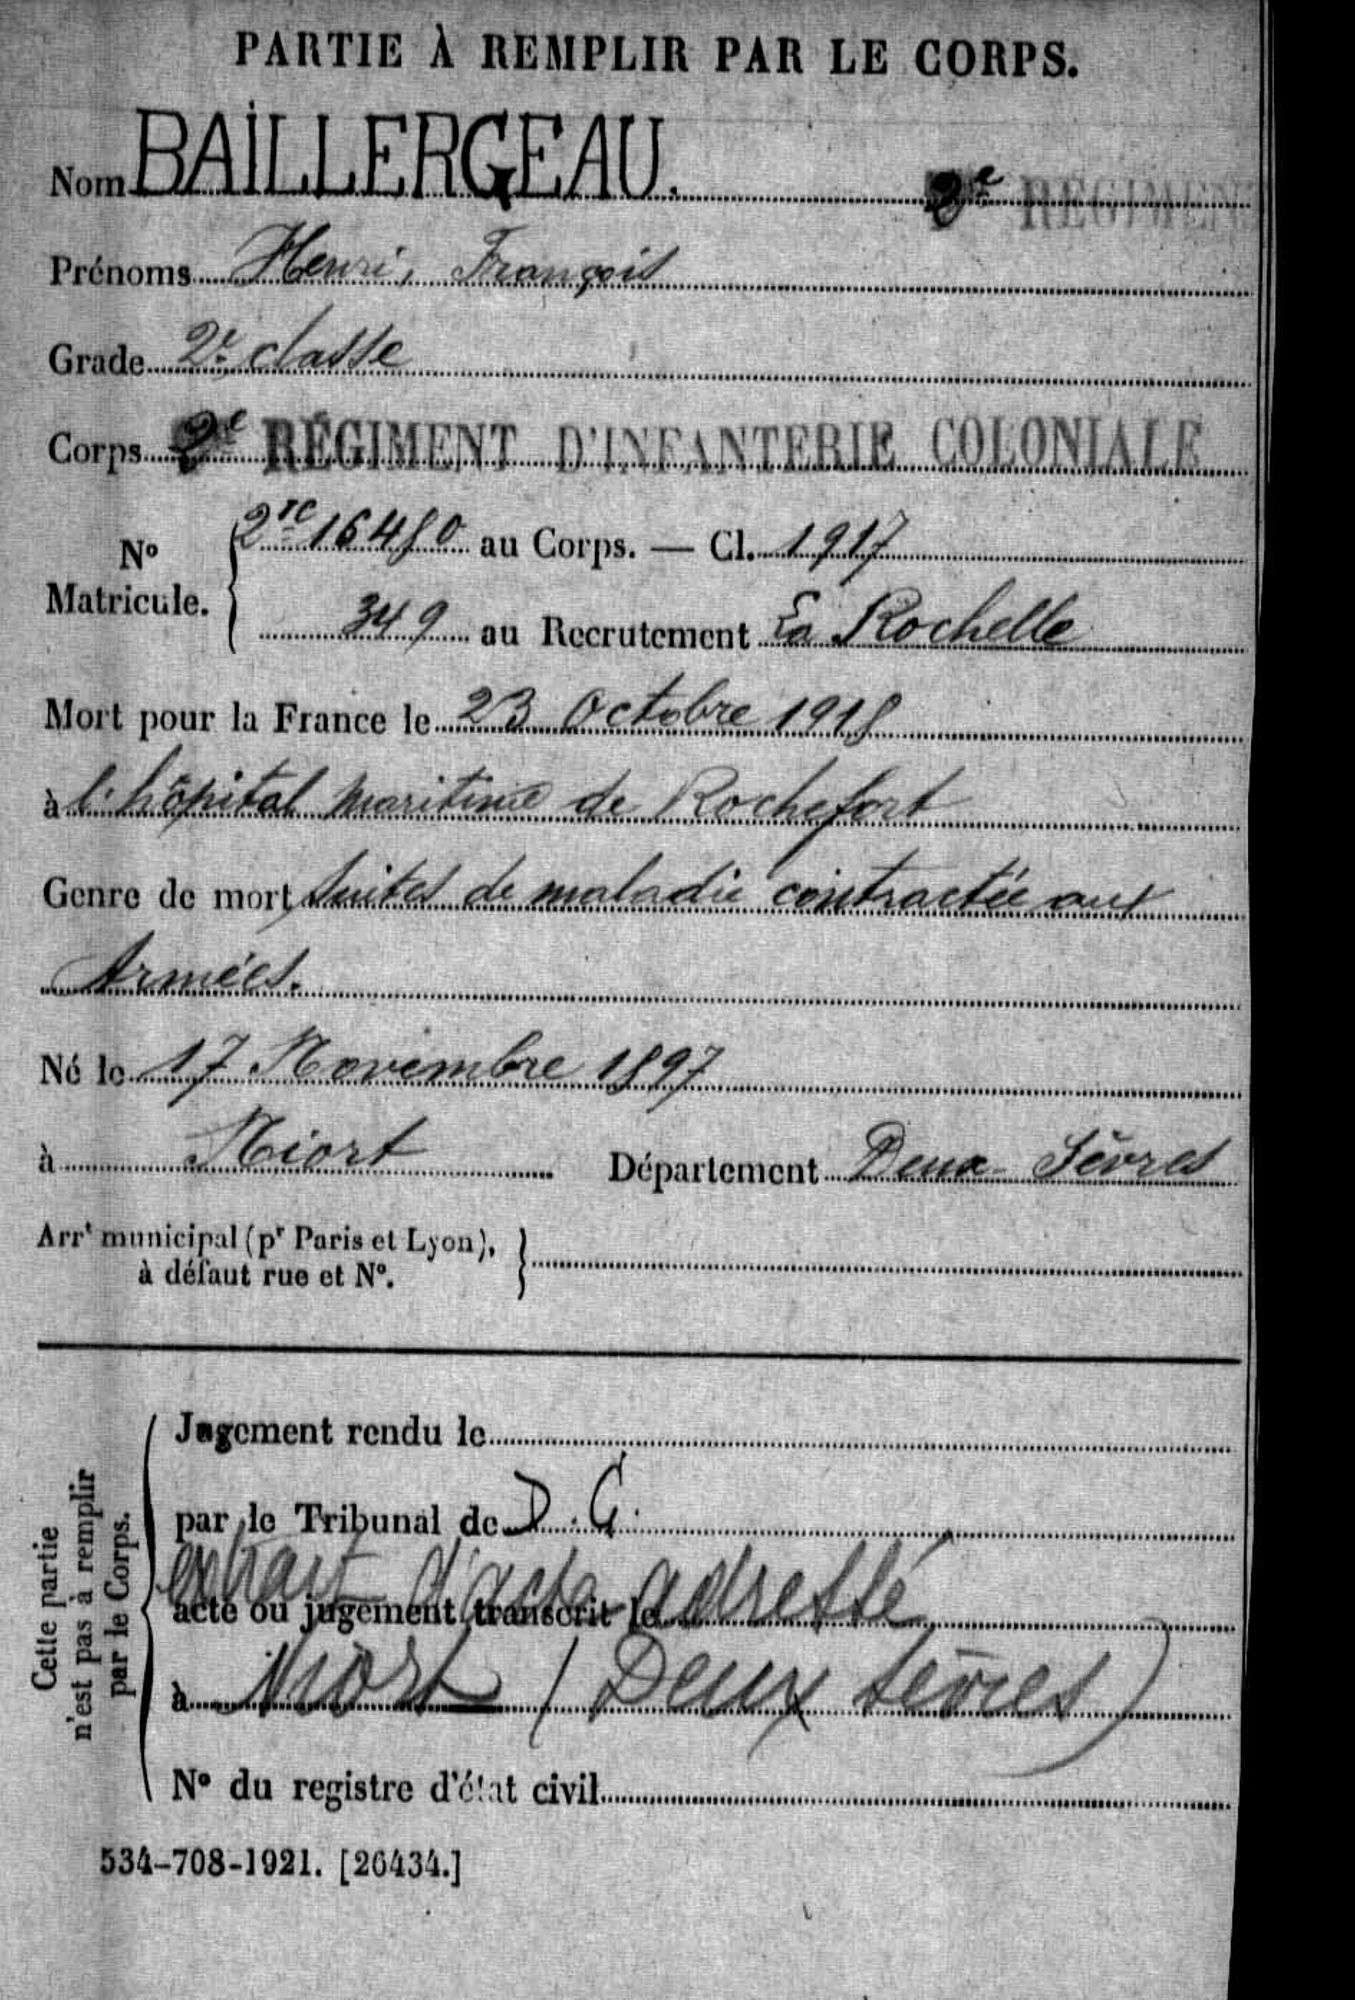 PARTIE À REMPLIR PAR LE CORPS.
Nom BAILLERGEAU.
2e REGIMEN
Prénoms Henri, François
Grade 2e classe
Corps 2e RÉGIMENT D'INFANTERIE COLONIALE
No Matricule.
2TC 16480 au Corps. — Cl. 1917
349 au Recrutement La Rochelle
Mort pour la France le 23 Octobre 1918
à l'hôpital maritime de Rochefort
Genre de mort suites de maladie contractée aux
Armées.
Né le 17 Novembre 1897
à Niort Département Deux-Sèvres
Arrt municipal (pr Paris et Lyon),
à défaut rue et No.
Cette partie
n'est pas à remplir
par le Corps.
Jugement rendu le
par le Tribunal de D. G.
extrait d'acte adressé
acte ou jugement transcrit le
à Niort (Deux Sèvres)
No du registre d'état civil
534-708-1921. [26434.]